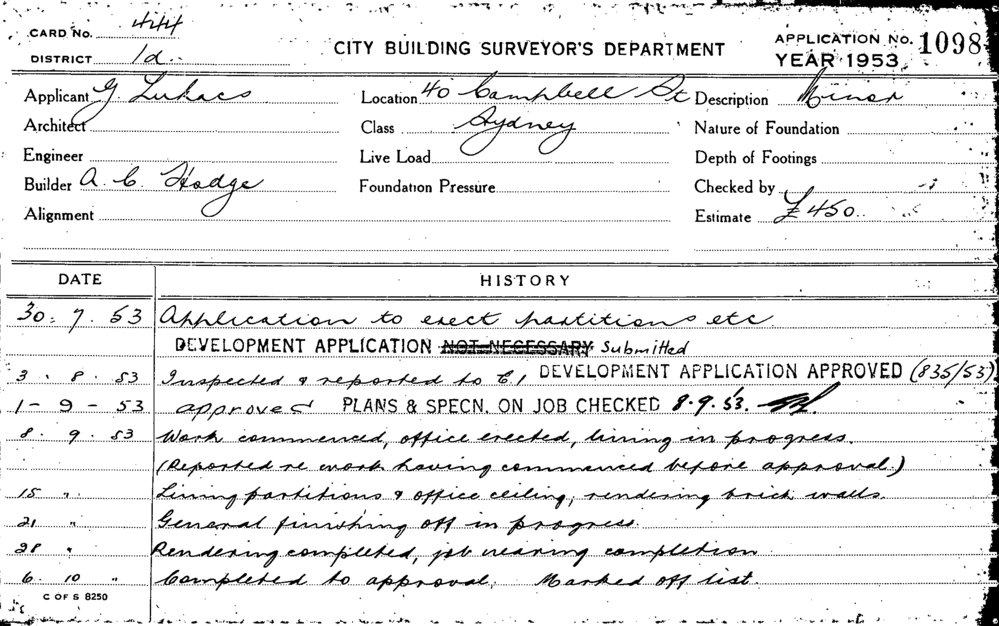 CARD No. 444
DISTRICT 1d.
CITY BUILDING SURVEYOR'S DEPARTMENT
APPLICATION No. 1098
YEAR 1953
Applicant G. Lukacs
Location 40 Campbell St
Description Minor
Architect
Class Sydney
Nature of Foundation
Engineer
Live Load
Depth of Footings
Builder A. C. Hodge
Foundation Pressure
Checked by
Alignment
Estimate £450
DATE HISTORY
30. 7. 53 Application to erect partitions etc
DEVELOPMENT APPLICATION NOT NECESSARY Submitted
3. 8. 53 Inspected & reported to C/ DEVELOPMENT APPLICATION APPROVED (835/53)
1 - 9 - 53 approved PLANS & SPECN. ON JOB CHECKED 8.9.53.
8. 9. 53 Work commenced, office erected, lining in progress.
(Reported re work having commenced before approval.)
15 " Lining partitions & office ceiling, rendering brick walls.
21 " General finishing off in progress.
28 " Rendering completed, job nearing completion
6 10 " Completed to approval. Marked off list.
C OF S 8250